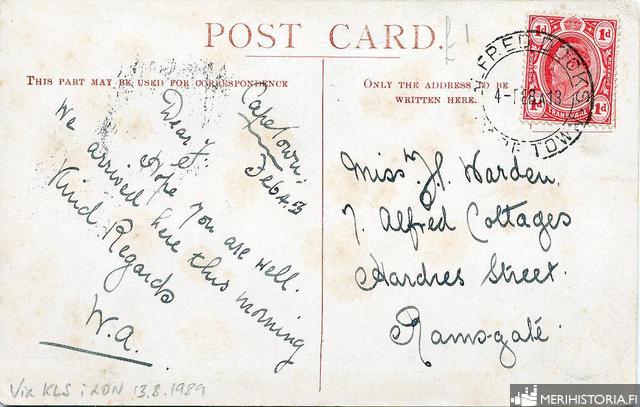 POST CARD.
£1
THIS PART MAY BE USED FOR CORRESPONDENCE
ONLY THE ADDRESS TO BE
WRITTEN HERE.
1d 1d
TRANSVAAL
1d
ALFRED DOCKS
4-FEB 13
CAPE TOWN
Cape Town:
Feb 4.13
Dear J.
Hope you are well.
We arrived here this morning
Kind Regards
W.A.
Miss H. Warden.
7. Alfred Cottages
Hardres Street.
Ramsgate.
Via KLS i LDN 13.8.1989
MERIHISTORIA.FI